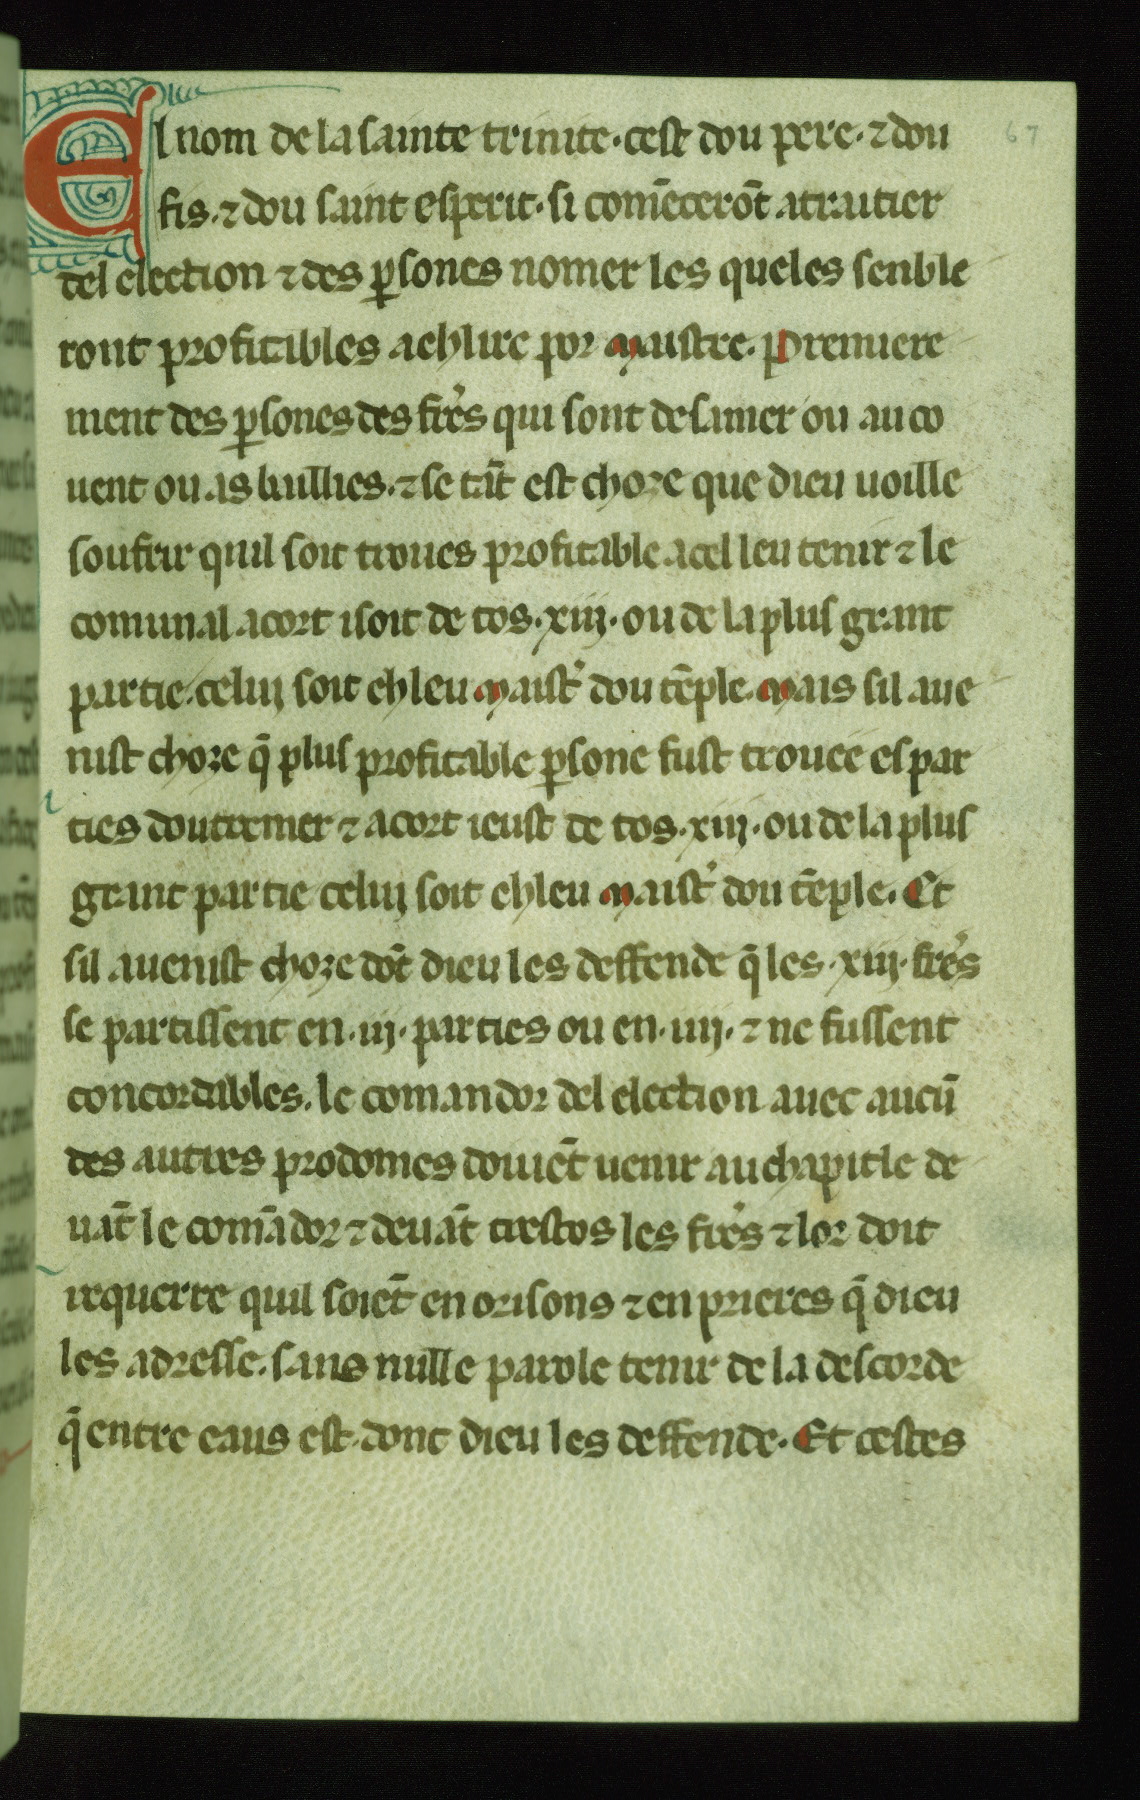 El nom de la sainte trinite · cest dou pere · ⁊ dou 67
fis · ⁊ dou saint esperit · si comēcerōt atraitier
del election ⁊ des ꝑsones nomer les queles senble
ront profitables a ehlire por maistre. Premiere
ment des ꝑsones des frẽs qui sont desamer ou au co
uent ou as baillies · ⁊ se tāt est choze que dieu uoille
soufrir quil soit troues profitable a cel leu tenir ⁊ le
comunal acort isoit de tos · xiij · ou de la plus grant
partie . celuj soit ehleu maist' dou tēple. Mais sil aue
nist choze q̄ plus profitable ꝑsone fust trouee es par
ties doutremer ⁊ acort ieust de tos · xiij · ou de la plus
grant partie celuj soit ehleu maist' dou tēple. Et
sil auenist choze dōt dieu les deffende q̄ les · xiij · frẽs
se partissent en · iij · parties ou en · iiij · ⁊ ne fussent
concordables . le comandor del election auec aucū
des autres prodomes doiuēt uenir au chapitle de
uāt le comādor ⁊ deuāt trestos les frẽs ⁊ lor doit
requerre quil soiēt en orisons ⁊ en prieres q̄ dieu
les adresse . sans nulle parole tenir de la descorde
q̄ entre eaus est · dont dieu les deffende · Et cestes